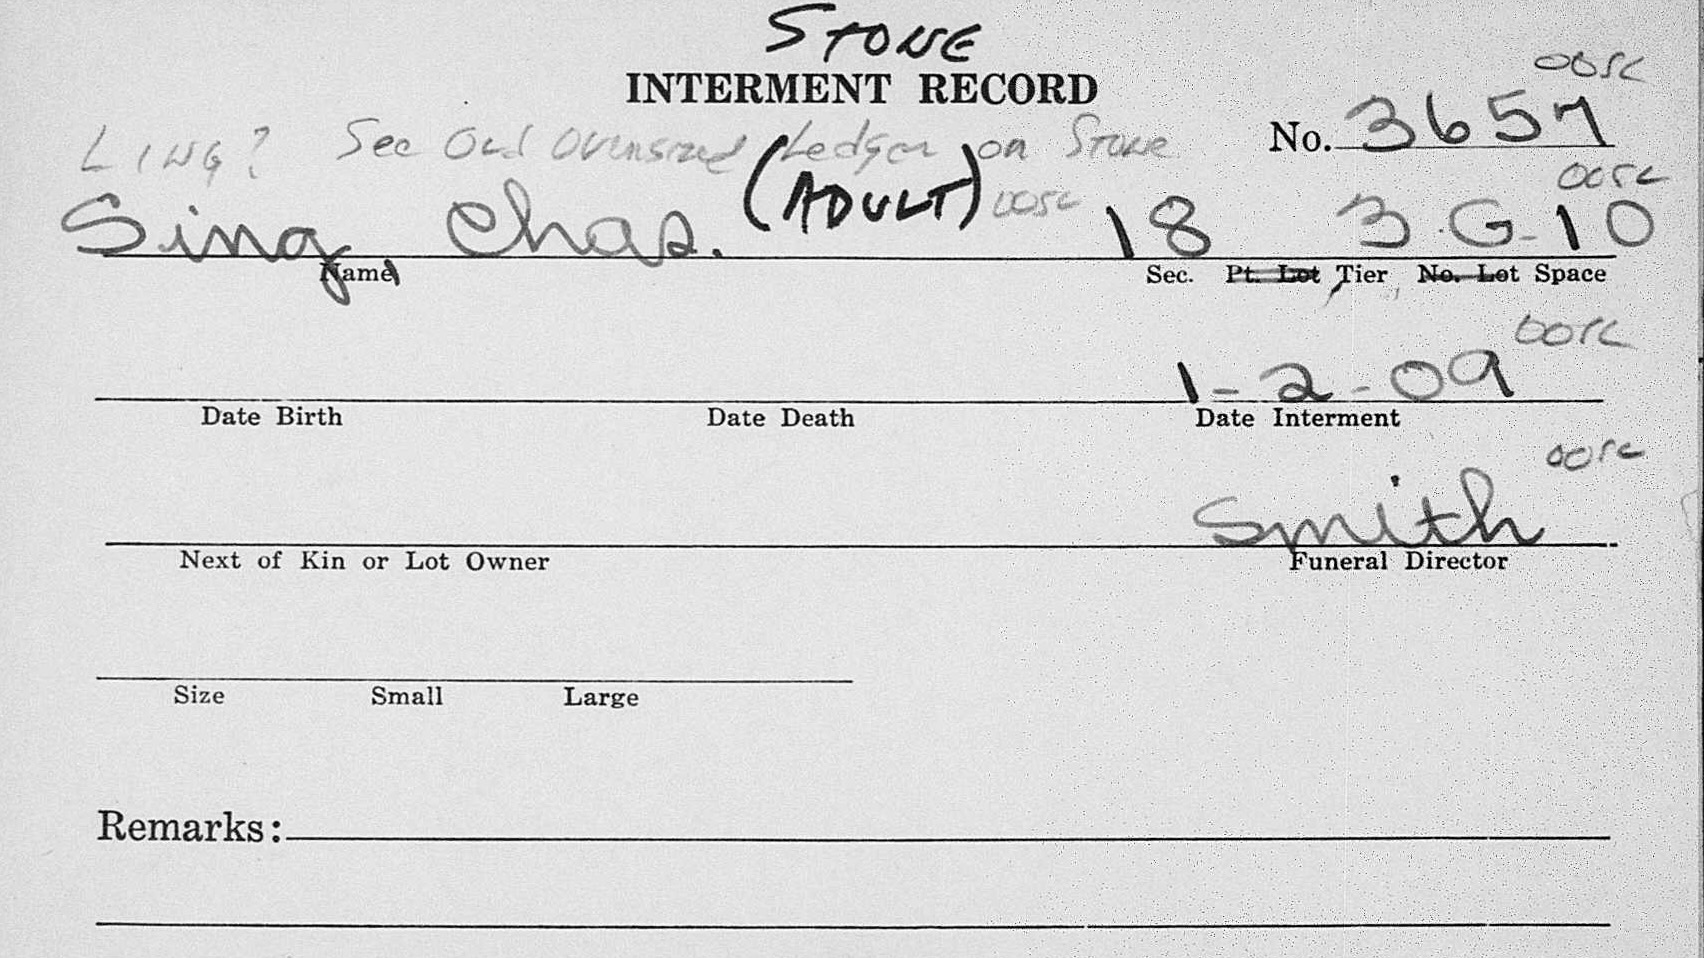 STONE
INTERMENT RECORD
OOSC
No. 3657
LING? See Old Oversized Ledger on Stone
OOSC
Sing Chas. (ADULT) OOSC 18 3-G-10
Name Sec. Pt. Lot Tier No. Lot Space
OOSC
1-2-09
Date Birth Date Death Date Interment
OOSC
Smith
Next of Kin or Lot Owner Funeral Director
Size Small Large
Remarks: